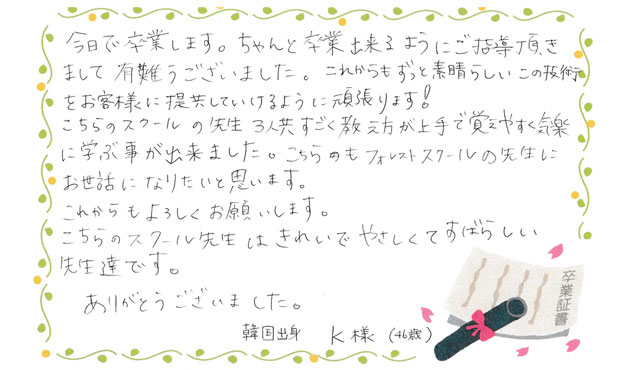 今日で卒業します。ちゃんと卒業出来るようにご指導頂き
まして有難うございました。これからもずっと素晴らしいこの技術
をお客様に提供していけるように頑張ります!
こちらのスクールの先生3人共すごく教え方が上手で覚えやすく気楽
に学ぶ事が出来ました。こちらのもフォレストスクールの先生に
お世話になりたいと思います。
これからもよろしくお願いします。
こちらのスクール先生はきれいでやさしくてすばらしい
先生達です。
ありがとうございました。
韓国出身 K様 (46歳)
卒業証書